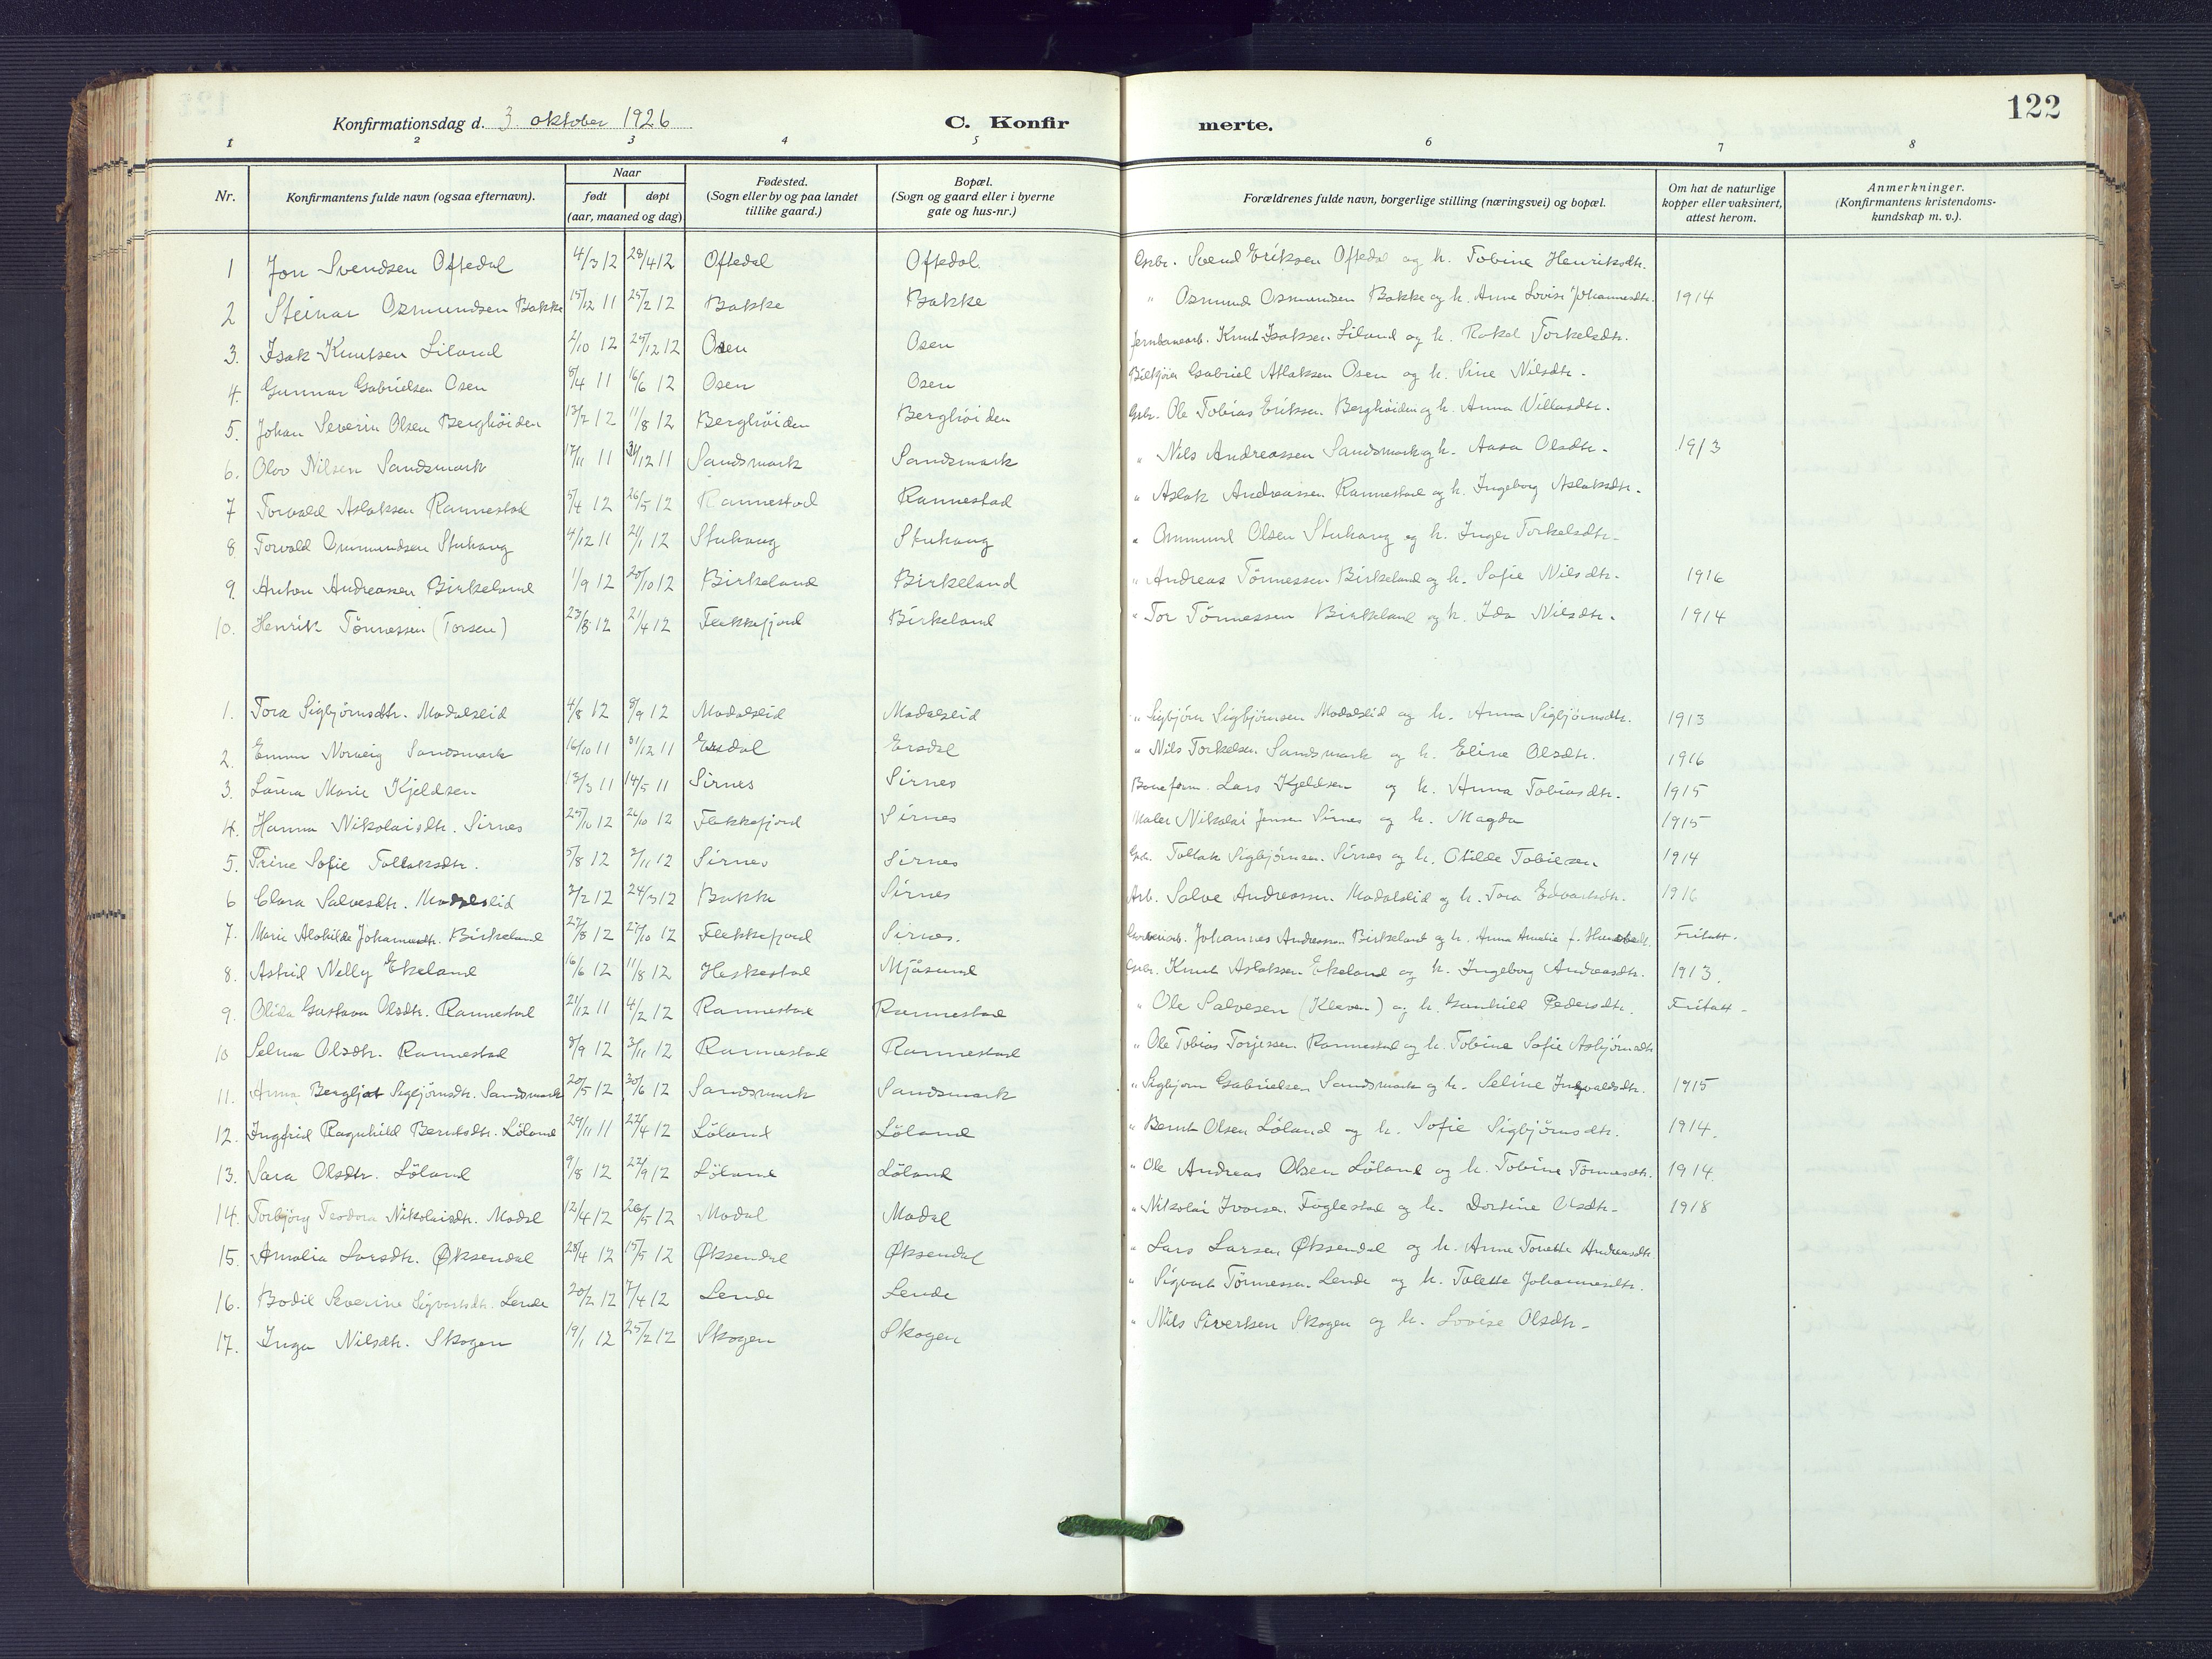 122
Konfirmationsdag d. 3 oktober 1926 C. Konfirmerte.
1 2 3 4 5 6 7 8
Nr. Konfirmantens fulde navn (ogsaa efternavn). Naar født døpt (aar, maaned og dag) Fødested. (Sogn eller by og paa landet tillike gaard.) Bopæl. (Sogn og gaard eller i byerne gate og hus-nr.) Forældrenes fulde navn, borgerlige stilling (næringsvei) og bopæl. Om hat de naturlige kopper eller vaksinert, attest herom. Anmerkninger. (Konfirmantens kristendomskundskap m. v.).
1 Jon Svendsen Oftedal 4/3 12 28/4 12 Oftedal Oftedal Gbr. Svend Eriksen Oftedal og h. Tobine Henriksdtr.
2 Steinar Osmundsen Bakke 15/12 11 25/2 12 Bakke Bakke " Osmund Osmundsen Bakke og h. Anne Lovise Johannesdtr. 1914
3. Isak Knutsen Liland 2/10 12 29/12 12 Osen Osen Jernbanearb. Knut Isaksen Liland og h. Rakel Torkelsdtr.
4. Gunnar Gabrielsen Osen 8/4 11 16/6 12 Osen Osen Bilkjører Gabriel Atlaksen Osen og h. Sine Nilsdtr.
5. Johan Severin Olsen Berghöiden 13/7 12 11/8 12 Berghöiden Berghöiden Gbr. Ole Tobias Eriksen Berghöiden og h. Anna Villasdtr.
6. Olav Nilsen Sandsmark 17/11 11 31/12 11 Sandsmark Sandsmark " Nils Andreassen Sandsmark og h. Aasa Olsdtr. 1913
7 Torvald Aslaksen Rannestad 5/4 12 26/5 12 Rannestad Rannestad " Aslak Andreassen Rannestad og h. Ingeborg Aslaksdtr.
8 Torvald Ommundsen Stuhaug 4/12 11 21/1 12 Stuhaug Stuhaug " Ommund Olsen Stuhaug og h. Inger Torkelsdtr.
9. Anton Andreassen Birkeland 1/9 12 20/10 12 Birkeland Birkeland " Andreas Tönnessen Birkeland og h. Sofie Nilsdtr. 1916
10. Henrik Tönnessen (Torsen) 23/3 12 21/4 12 Flekkefjord Birkeland " Tor Tönnessen Birkeland og h. Ida Nilsdtr. 1914
1. Tora Sigbjörnsdtr. Modalslid 4/8 12 8/9 12 Modalslid Modalslid " Sigbjörn Sigbjörnsen Modalslid og h. Anna Sigbjörnsdtr. 1913
2. Emma Norveig Sandsmark 16/10 11 31/12 11 Ersdal Ersdal " Nils Torkelsen Sandsmark og h. Eline Olsdtr. 1916
3. Laura Marie Kjeldsen 13/3 11 14/5 11 Sirnes Sirnes Baneform. Lars Kjeldsen og h. Anna Tobiasdtr. 1915
4. Hanna Nikolaisdtr. Sirnes Flekkefjord Sirnes Maler Nikolai Jensen Sirnes og h. Magda 1915
5. Trine Sofie Tollaksdtr. 5/8 12 3/11 12 Sirnes Sirnes Gbr. Tollak Sigbjörnsen Sirnes og h. Otilde Tobiesen 1914
6 Clara Salvesdtr. Modalslid 3/2 12 24/3 12 Bakke Sirnes Arb. Salve Andreassen Modalslid og h. Tora Edvartsdtr. 1916
7. Marie Alvhilde Johannesdtr. Birkeland 27/8 12 27/10 12 Flekkefjord Sirnes. Johannes Andreassen Birkeland og h. Anna Amalie f. Fritatt.
8. Astrid Nelly Ekeland 16/6 12 11/8 12 Heskestad Mjåsund Gbr. Knut Aslaksen Ekeland og h. Ingeborg Andreasdtr. 1913.
9. Olida Gustava Olsdtr. Rannestad 21/12 11 4/2 12 Rannestad Rannestad " Ole Salvesen (Kleven) og h. Gunhild Pedersdtr. Fritatt
10 Selma Olsdtr. Rannestad 8/9 12 3/11 12 Rannestad Rannestad " Ole Tobias Torjessen Rannestad og h. Tobine Sofie Asbjörnsdtr
11. Anna Bergljot Sigbjörnsdtr. Sandsmark 20/5 12 30/6 12 Sandsmark Sandsmark " Sigbjorn Gabrielsen Sandsmark og h. Seline Ingvaldsdtr. 1915
12. Ingfrid Ragnhild Berntsdtr. Löland 29/11 11 27/4 12 Löland Löland " Bernt Olsen Löland og h. Sofie Sigbjörnsdtr. 1914.
13. Sara Olsdtr. Löland 9/8 12 22/9 12 Löland Löland " Ole Andreas Olsen Löland og h. Tobine Tönnesdtr. 1914.
14. Torbjörg Teodora Nikolaisdtr. Modal 12/4 12 26/5 12 Modal Modal " Nikolai Ivarsen Fuglestad og h. Dortine Olsdtr. 1918
15. Amalia Larsdtr. Øksendal 28/4 12 15/5 12 Øksendal Øksendal " Lars Larsen Øksendal og h. Anne Tonette Andreasdtr.
16. Bodil Severine Sigvartsdtr. Lende 20/2 12 7/4 12 Lende Lende " Sigvart Tönnessen Lende og h. Tolette Johannesdtr.
17. Inga Nilsdtr. Skogen 19/1 12 25/2 12 Skogen Skogen " Nils Sivertsen Skogen og h. Lovise Olsdtr.